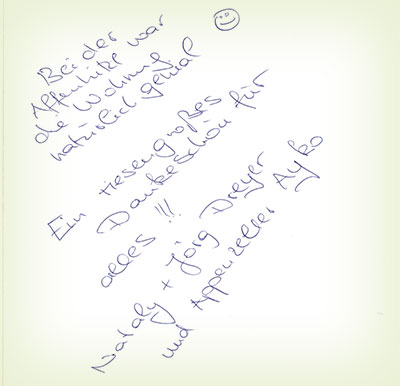 Bei der
Affenhitze war
die Wohnung
natürlich genial
Ein riesengroßes
Dankeschön für
alles !!!
Nataly + Jörg Dreyer
und Appenzeller Ayko